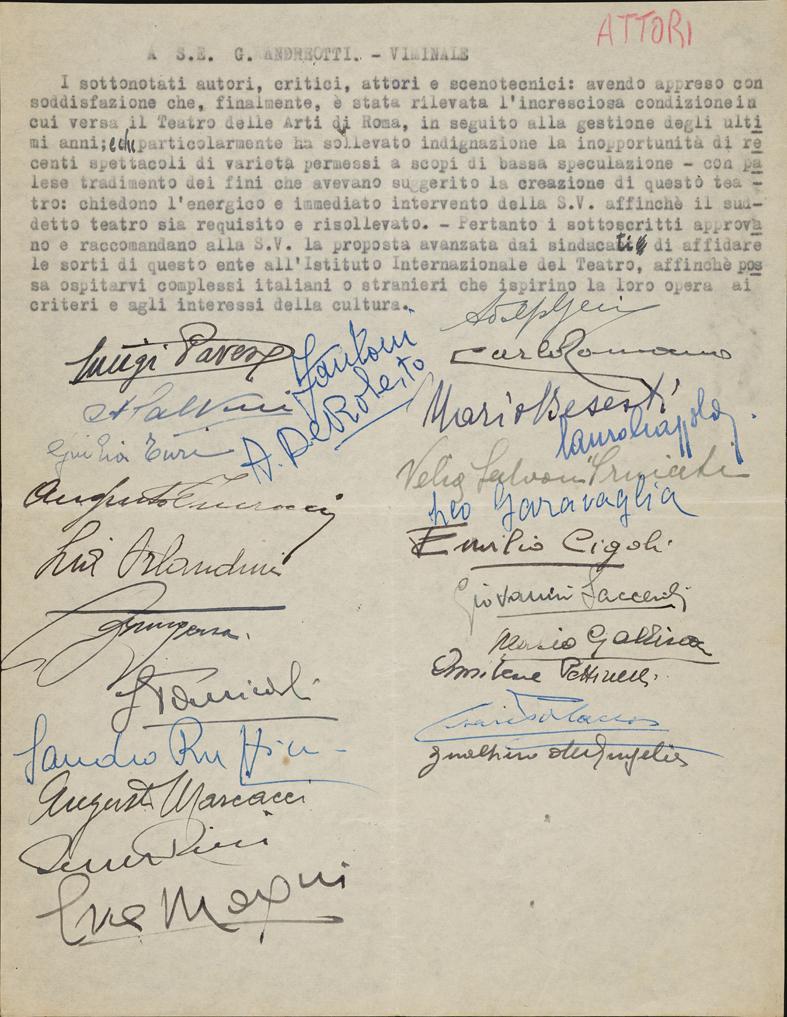 ATTORI
A S.E. G. ANDREOTTI. - VIMINALE
I sottonotati autori, critici, attori e scenotecnici: avendo appreso con
soddisfazione che, finalmente, è stata rilevata l'incresciosa condizione in
cui versa il Teatro delle Arti di Roma, in seguito alla gestione degli ulti
mi anni; e che particolarmente ha sollevato indignazione la inopportunità di re
centi spettacoli di varietà permessi a scopi di bassa speculazione - con pa
lese tradimento dei fini che avevano suggerito la creazione di questo tea -
tro: chiedono l'energico e immediato intervento della S.V. affinchè il sud-
detto teatro sia requisito e risollevato. - Pertanto i sottoscritti approva
no e raccomandano alla S.V. la proposta avanzata dai sindacati di affidare
le sorti di questo ente all'Istituto Internazionale del Teatro, affinchè pos
sa ospitarvi complessi italiani o stranieri che ispirino la loro opera ai
criteri e agli interessi della cultura.
Luigi Pavese
Fantoni
Carlo Romano
A. De Roberto
Mario Besesti
Lauro Gazzolo
Leo Garavaglia
Lia Orlandini
Emilio Cigoli
Giovanni Saccenti
Mario Gallina
Amilcare Pettinelli
Sandro Ruffini
Gualtiero De Angelis
Augusto Marcacci
Eva Magni